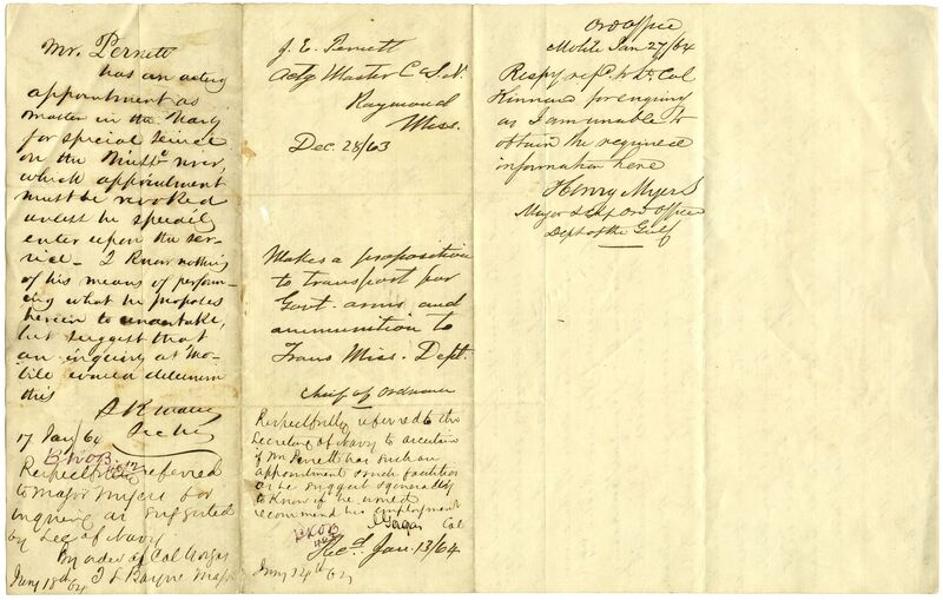 Mr. Pernett
has an acting
appointment as
master in the Navy
for special service
on the Missi. river,
which appointment
must be revoked
unless he speedily
enter upon the ser-
vice - I know nothing
of his means of perform-
ing what he proposes
herein to undertake,
but suggest that
an inquiry at Mo-
bile would determine
this
17 Jany/64
Respectfully referred
to Major Myers for
inquiry as suggested
by Sec of Navy
By order of Col Gorgas
Jany 18th 64 T L Bayne Major
J. E. Pernett
Actg Master C.S.N.
Raymond
Miss.
Dec. 28/63
Makes a proposition
to transport for
Govt. arms and
ammunition to
Trans Miss. Dept.
Chief of Ordnance
Respectfully referred to the
Secretary of Navy to ascertain
if Mr Pernett has such an
appointment & such facilities
as he suggests & generally
to know if he would
recommend his employment
J Gorgas Col
Recd. Jan. 13/64
Jany 14th 64
Ord Office
Mobile Jan 27/64
Respy ref'd. to Lt. Col
Kinnard for enquiry
as I am unable to
obtain the required
information here
Henry Myers
Major & Chf Ord Officer
Dept of the Gulf